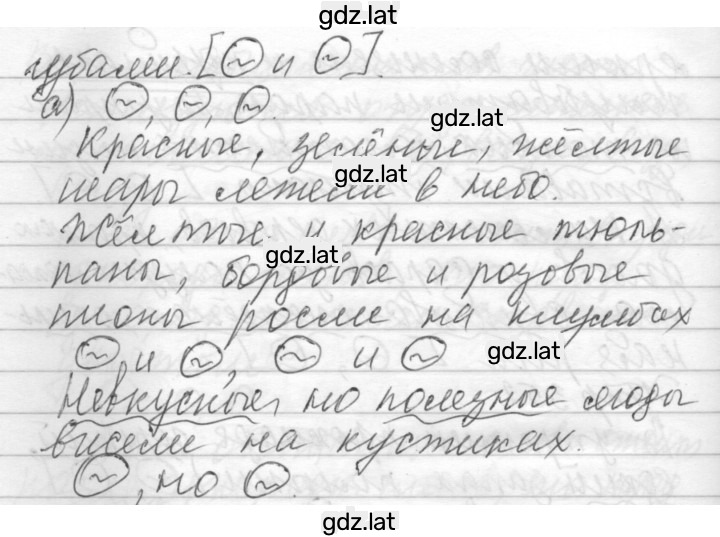 gdz.lat
губами. [~ и ~].
а) ~, ~, ~.
gdz.lat
Красные, зелёные, жёлтые
gdz.lat
шары летели в небо.
Жёлтые и красные тюль-
gdz.lat
паны, бордовые и розовые
пионы росли на клумбах
~ и ~, ~ и ~
gdz.lat
Невкусные, но полезные плоды
висели на кустиках.
~, но ~.
gdz.lat